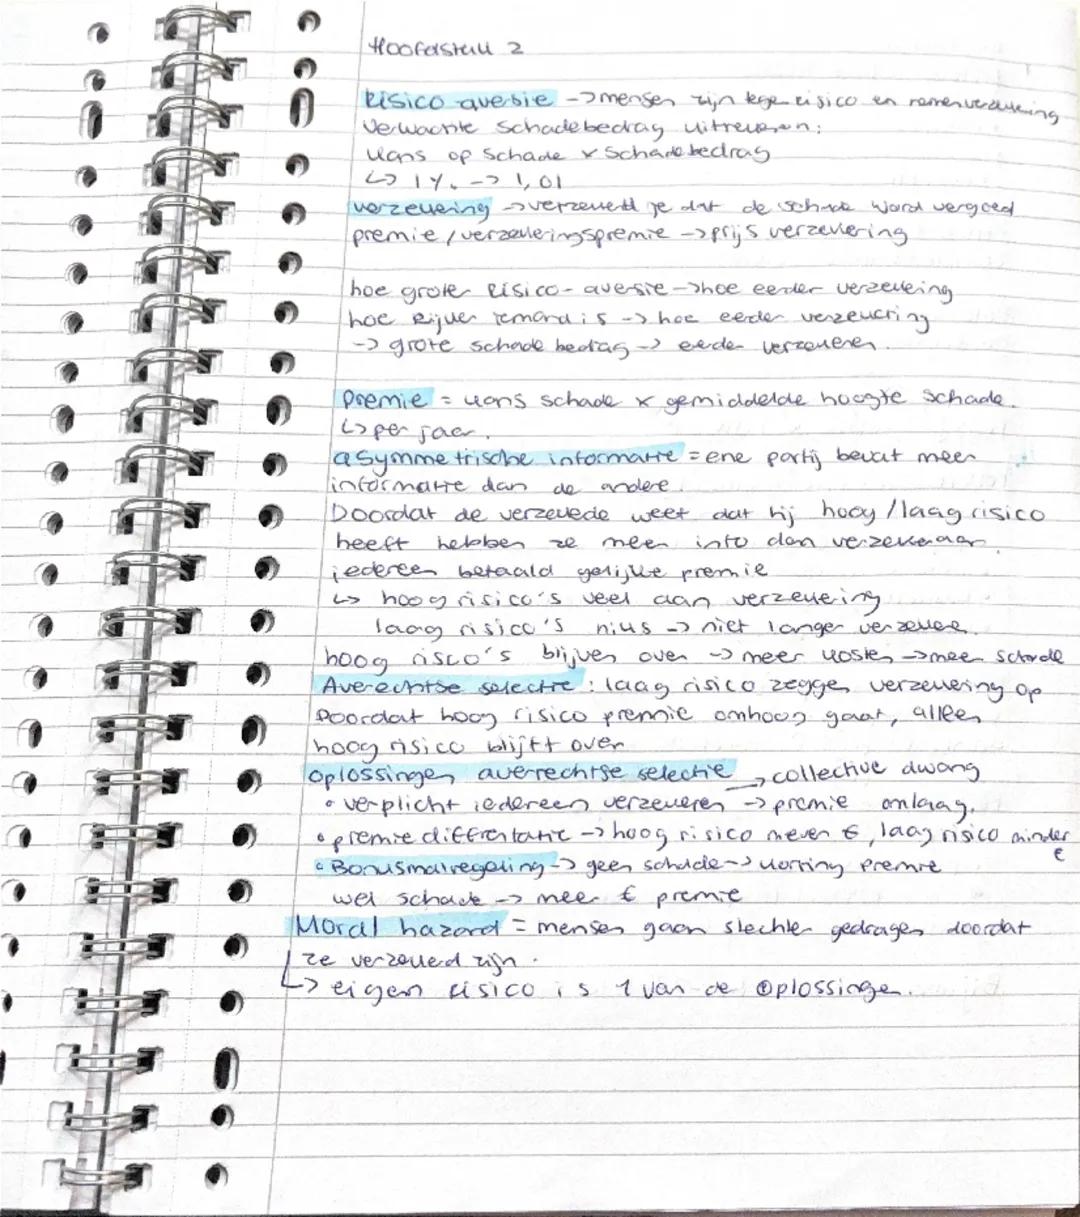 Hoofdstuk 2
Risico aversie -> mensen zijn tegen risico en nemen verzekering
verwachte schadebedrag uitrekenen:
kans op schade x schadebedrag
↳ 1% -> 1,01
verzekering -> verzekerd je dat de schade word vergoed
premie / verzekeringspremie -> prijs verzekering
hoe groter risico-aversie -> hoe eerder verzekering
hoe rijker iemand is -> hoe eerder verzekering
-> grote schade bedrag -> eerder verzekeren.
Premie = kans schade x gemiddelde hoogte schade.
↳ per jaar.
asymmetrische informatie = ene partij bevat meer
informatie dan de andere.
Doordat de verzekerde weet dat hij hoog / laag risico
heeft hebben ze meer info dan verzekeraar
iedereen betaald gelijke premie
↳ hoog risico's veel aan verzekering
laag risico's niks -> niet langer verzekeren.
hoog risco's blijven over -> meer kosten -> meer schade
Averechtse selectie: laag risico zeggen verzekering op
Doordat hoog risico premie omhoog gaat, alleen
hoog risico blijft over
Oplossingen averrechtse selectie -> collectieve dwang
• verplicht iedereen verzekeren -> premie omlaag.
• premiediffrentatie -> hoog risico meer €, laag risico minder €
• Bonusmalregeling -> geen schade -> korting premie
wel schade -> meer € premie
Moral hazard = mensen gaan slechter gedragen doordat
ze verzekerd zijn.
↳ eigen risico is 1 van de oplossingen.